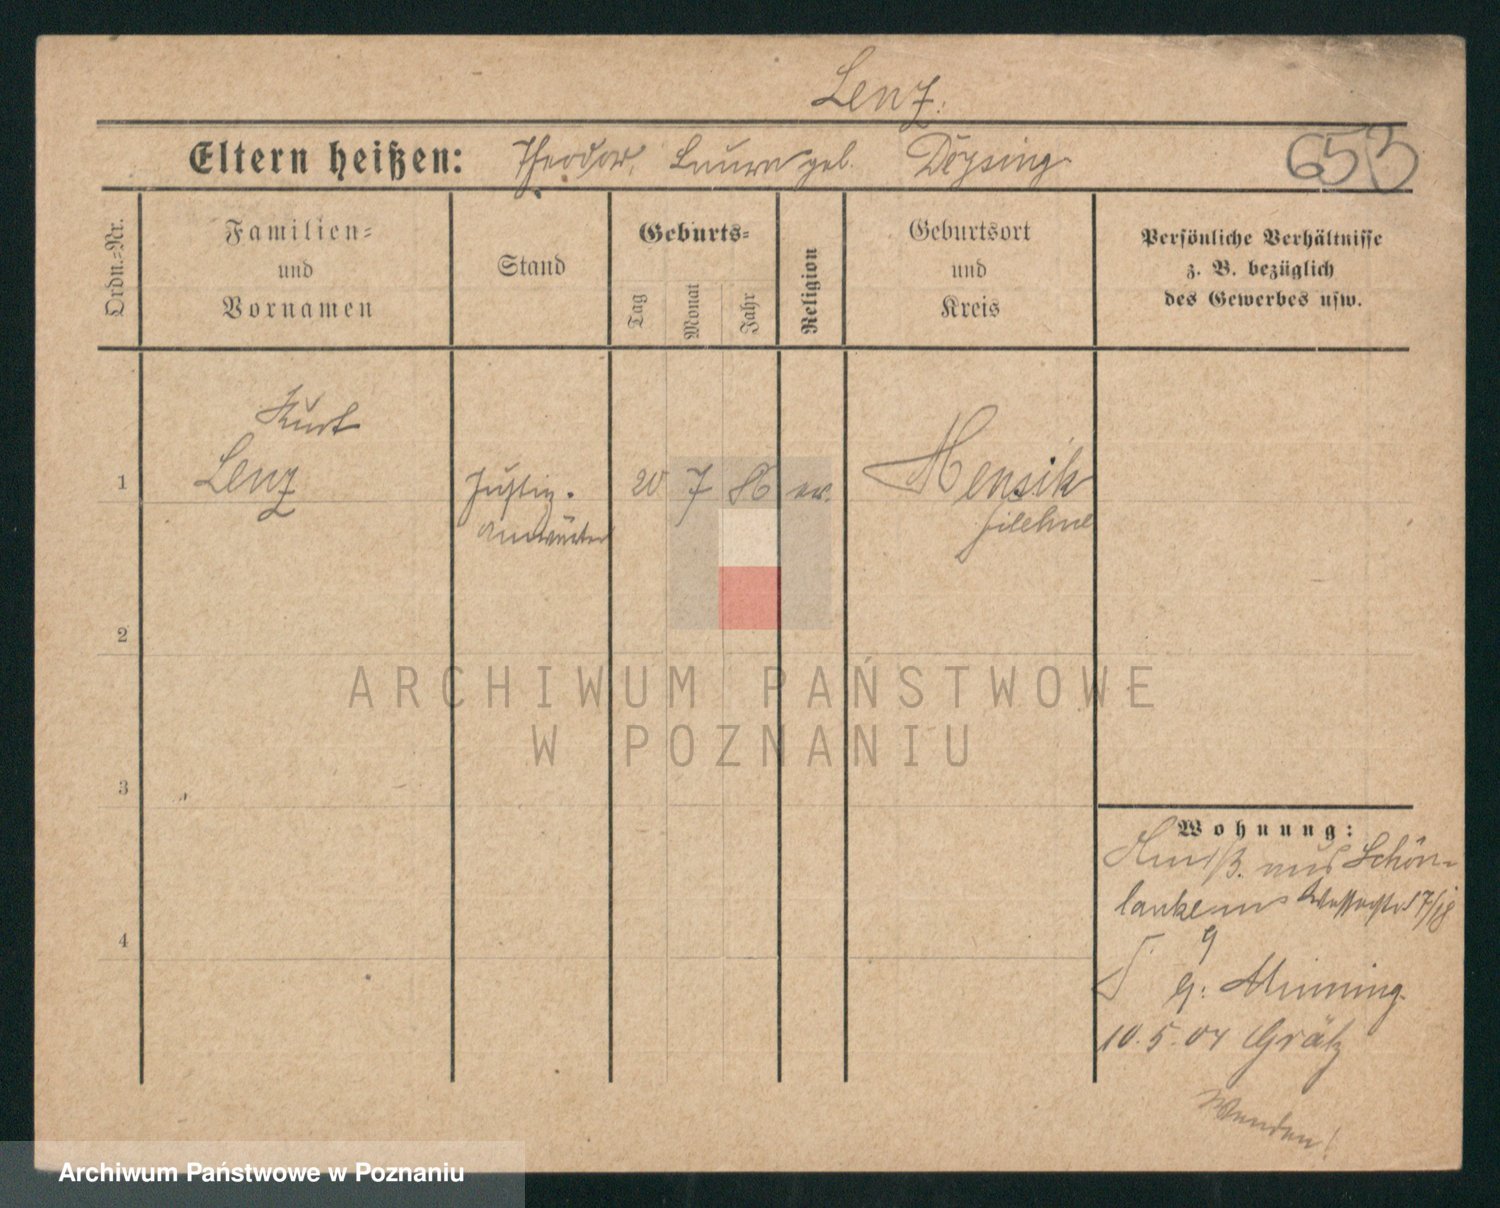 Lenz.
Eltern heißen: Theodor, Laura geb. Döysing
653
Ordn.=Nr.
Familien=
und
Vornamen
Stand
Geburts=
Tag
Monat
Jahr
Religion
Geburtsort
und
Kreis
Persönliche Verhältnisse
z. B. bezüglich
des Gewerbes usw.
Kurt
1 Lenz Justiz. 20 7 86 ev. Mensik
Anwärter Filehne
2
3
4
Wohnung:
aus Schön-
lanke 17/18
g
g: Minning
10.5.04 Grätz
Wenden!
ARCHIWUM PAŃSTWOWE
W POZNANIU
Archiwum Państwowe w Poznaniu